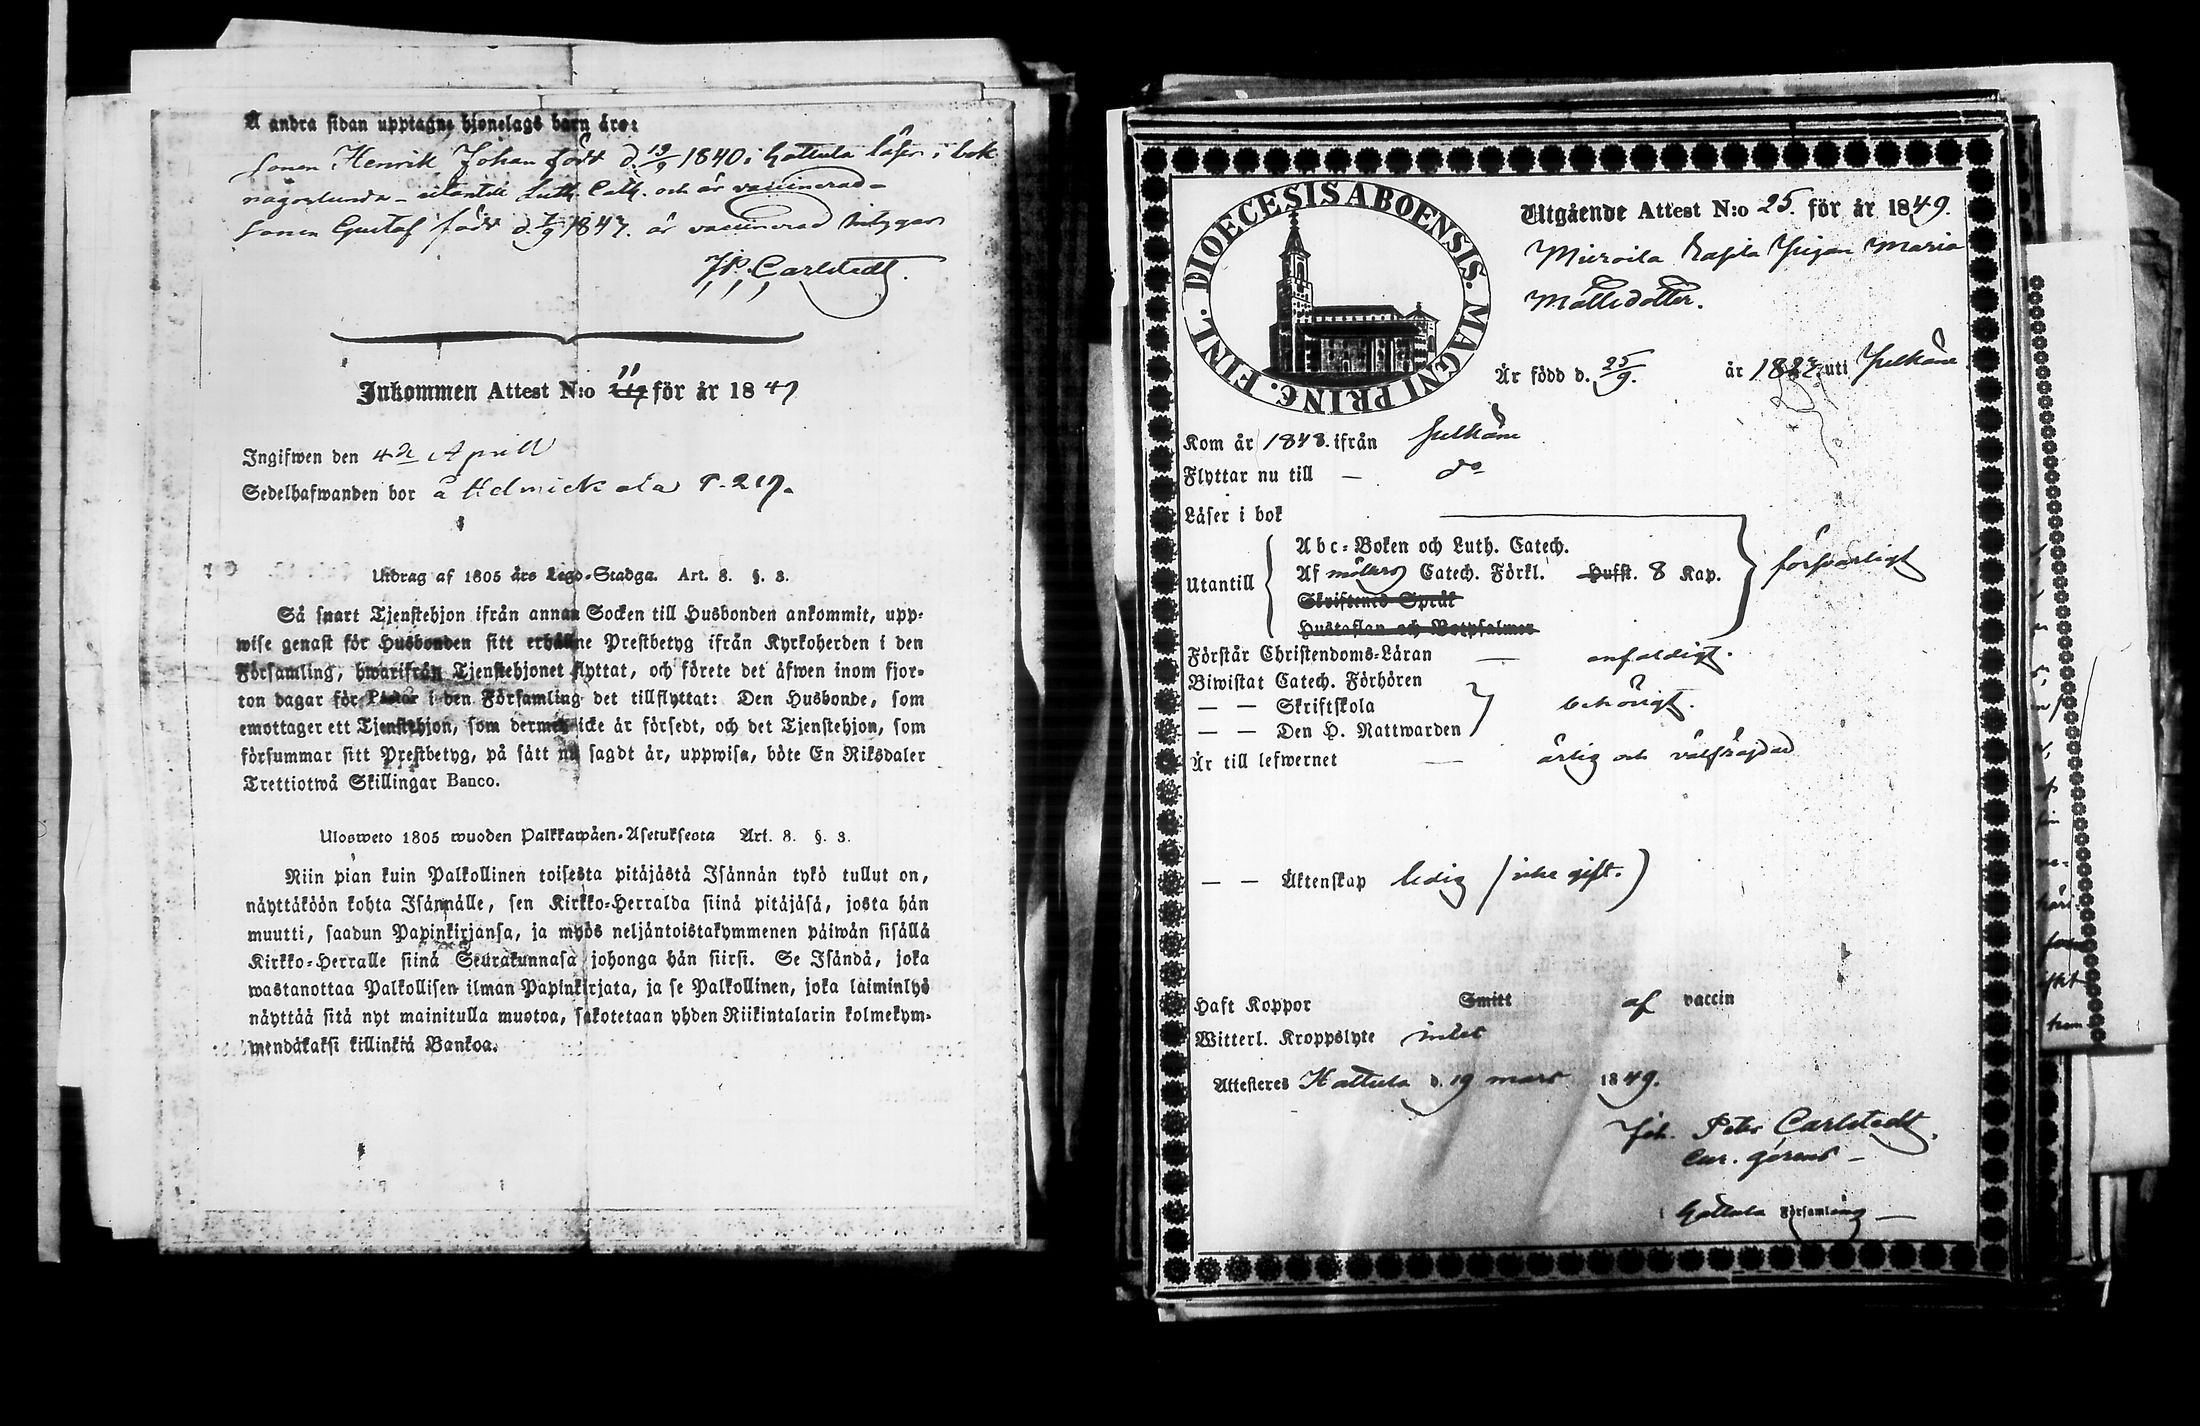 Å andra sidan upptagne hjonelags barn äro:
Sonen Henrik Johan född d. 19/9 1840 i Hattula läser i bok
någorlunda – utantill Luth. Cath. och är vaccinerad –
Sonen Gustaf född d. 7/9 1847. är vaccinerad intygar
J.P. Carlstedt.
Inkommen Attest N:o 11 för år 1849
Ingifwen den 4de Aprill
Sedelhafwanden bor å P. 219.
Utdrag af 1805 års Lego-Stadga. Art. 8. §. 3.
Så snart Tjenstehjon ifrån annan Socken till Husbonden ankommit, upp-
wise genast för Husbonden sitt erhållne Prestbetyg ifrån Kyrkoherden i den
Församling, hwarifrån Tjenstehjonet flyttat, och förete det äfwen inom fjor-
ton dagar för Pastor i den Församling det tillflyttat: Den Husbonde, som
emottager ett Tjenstehjon, som dermed icke är försedt, och det Tjenstehjon, som
försummar sitt Prestbetyg, på sätt nu sagdt är, uppwisa, böte En Riksdaler
Trettiotwå Skillingar Banco.
Ulosweto 1805 wuoden Palkkawäen-Asetuksesta Art. 8. §. 3.
Niin pian kuin Palkollinen toisesta pitäjästä Isännän tykö tullut on,
näyttäköön kohta Isännälle, sen Kirkko-Herralda siinä pitäjäsä, josta hän
muutti, saadun Papinkirjansa, ja myös neljäntoistakymmenen päiwän sisällä
Kirkko-Herralle siinä Seurakunnasa johonga hän siirsi. Se Isändä, joka
wastanottaa Palkollisen ilman Papinkirjata, ja se Palkollinen, joka laiminlyö
näyttää sitä nyt mainitulla muotoa, sakotetaan yhden Riikintalarin kolmekym-
mendäkaksi killinkiä Bankoa.
DIOECESIS ABOENSIS. MAGNI PRINC. FINL.
Utgående Attest N:o 25. för år 1849.
Mieroila Pigan Maria
Mattsdotter.
Är född d. 25/9. år 1827 uti Pelkäne
Kom år 1848. ifrån Pelkäne
Flyttar nu till – do
Läser i bok
Utantill
Abc-Boken och Luth. Catech.
Af Möllers Catech. Förkl. Hufst. 8 Kap.
Skriftenes Språk
Hustaflan och Botpsalmer
försvarligt
Förstår Christendoms-Läran – enfaldigt.
Biwistat Catech. Förhören
— — Skriftskola behörigt.
— — Den H. Nattwarden
Är till lefwernet — ärlig och välfräjdad
— — Äktenskap ledig (icke gift.)
Haft Koppor Smitt af vaccin
Witterl. Kroppslyte intet
Attesteres Hattula d. 19 mars 1849.
Joh. Peter Carlstedt.
Cur. gerens –
Hattula Församling —